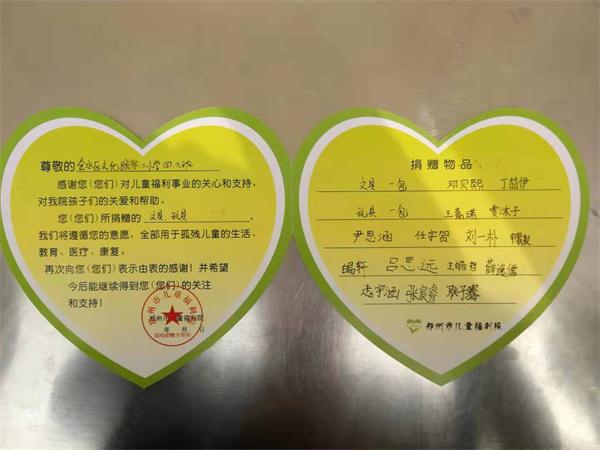 尊敬的 金水区文化绿城小学四六班
感谢您(您们)对儿童福利事业的关心和支持,
对我院孩子们的关爱和帮助。
您(您们)所捐赠的 文具 玩具 ,
我们将遵循您的意愿,全部用于孤残儿童的生活、
教育、医疗、康复。
再次向您(您们)表示由衷的感谢!并希望
今后能继续得到您(您们)的关注
和支持!
郑州市儿童福利院
年 月 日
捐赠物品
文具 一包 邓贝熙 丁喆伊
玩具 一包 王嘉诺
尹思涵 任宇贺 刘一朴
吕思远 王皓哲
张宸睿
郑州市儿童福利院